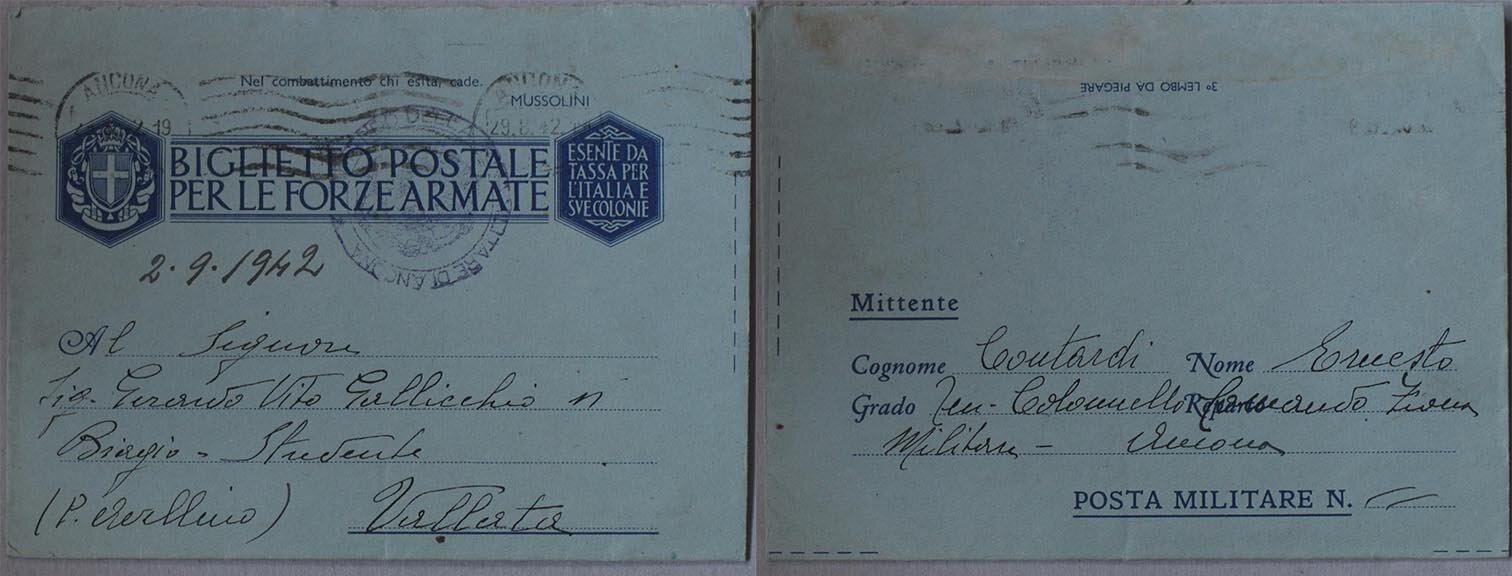 Nel combattimento chi esita, cade.
MUSSOLINI
ANCONA
ANCONA
19
29.8.42
BIGLIETTO POSTALE
PER LE FORZE ARMATE
ESENTE DA
TASSA PER
L'ITALIA E
SVE COLONIE
DELL'
DI ANCONA
2.9.1942
Al Signore
Sig. Gerardo Vito Gallicchio
Biagio - Studente
(P. Avellino) Vallata
3° LEMBO DA PIEGARE
Mittente
Cognome Contardi Nome Ernesto
Grado Ten. Colonnello Reparto Comando Zona
Militare - Ancona
POSTA MILITARE N.